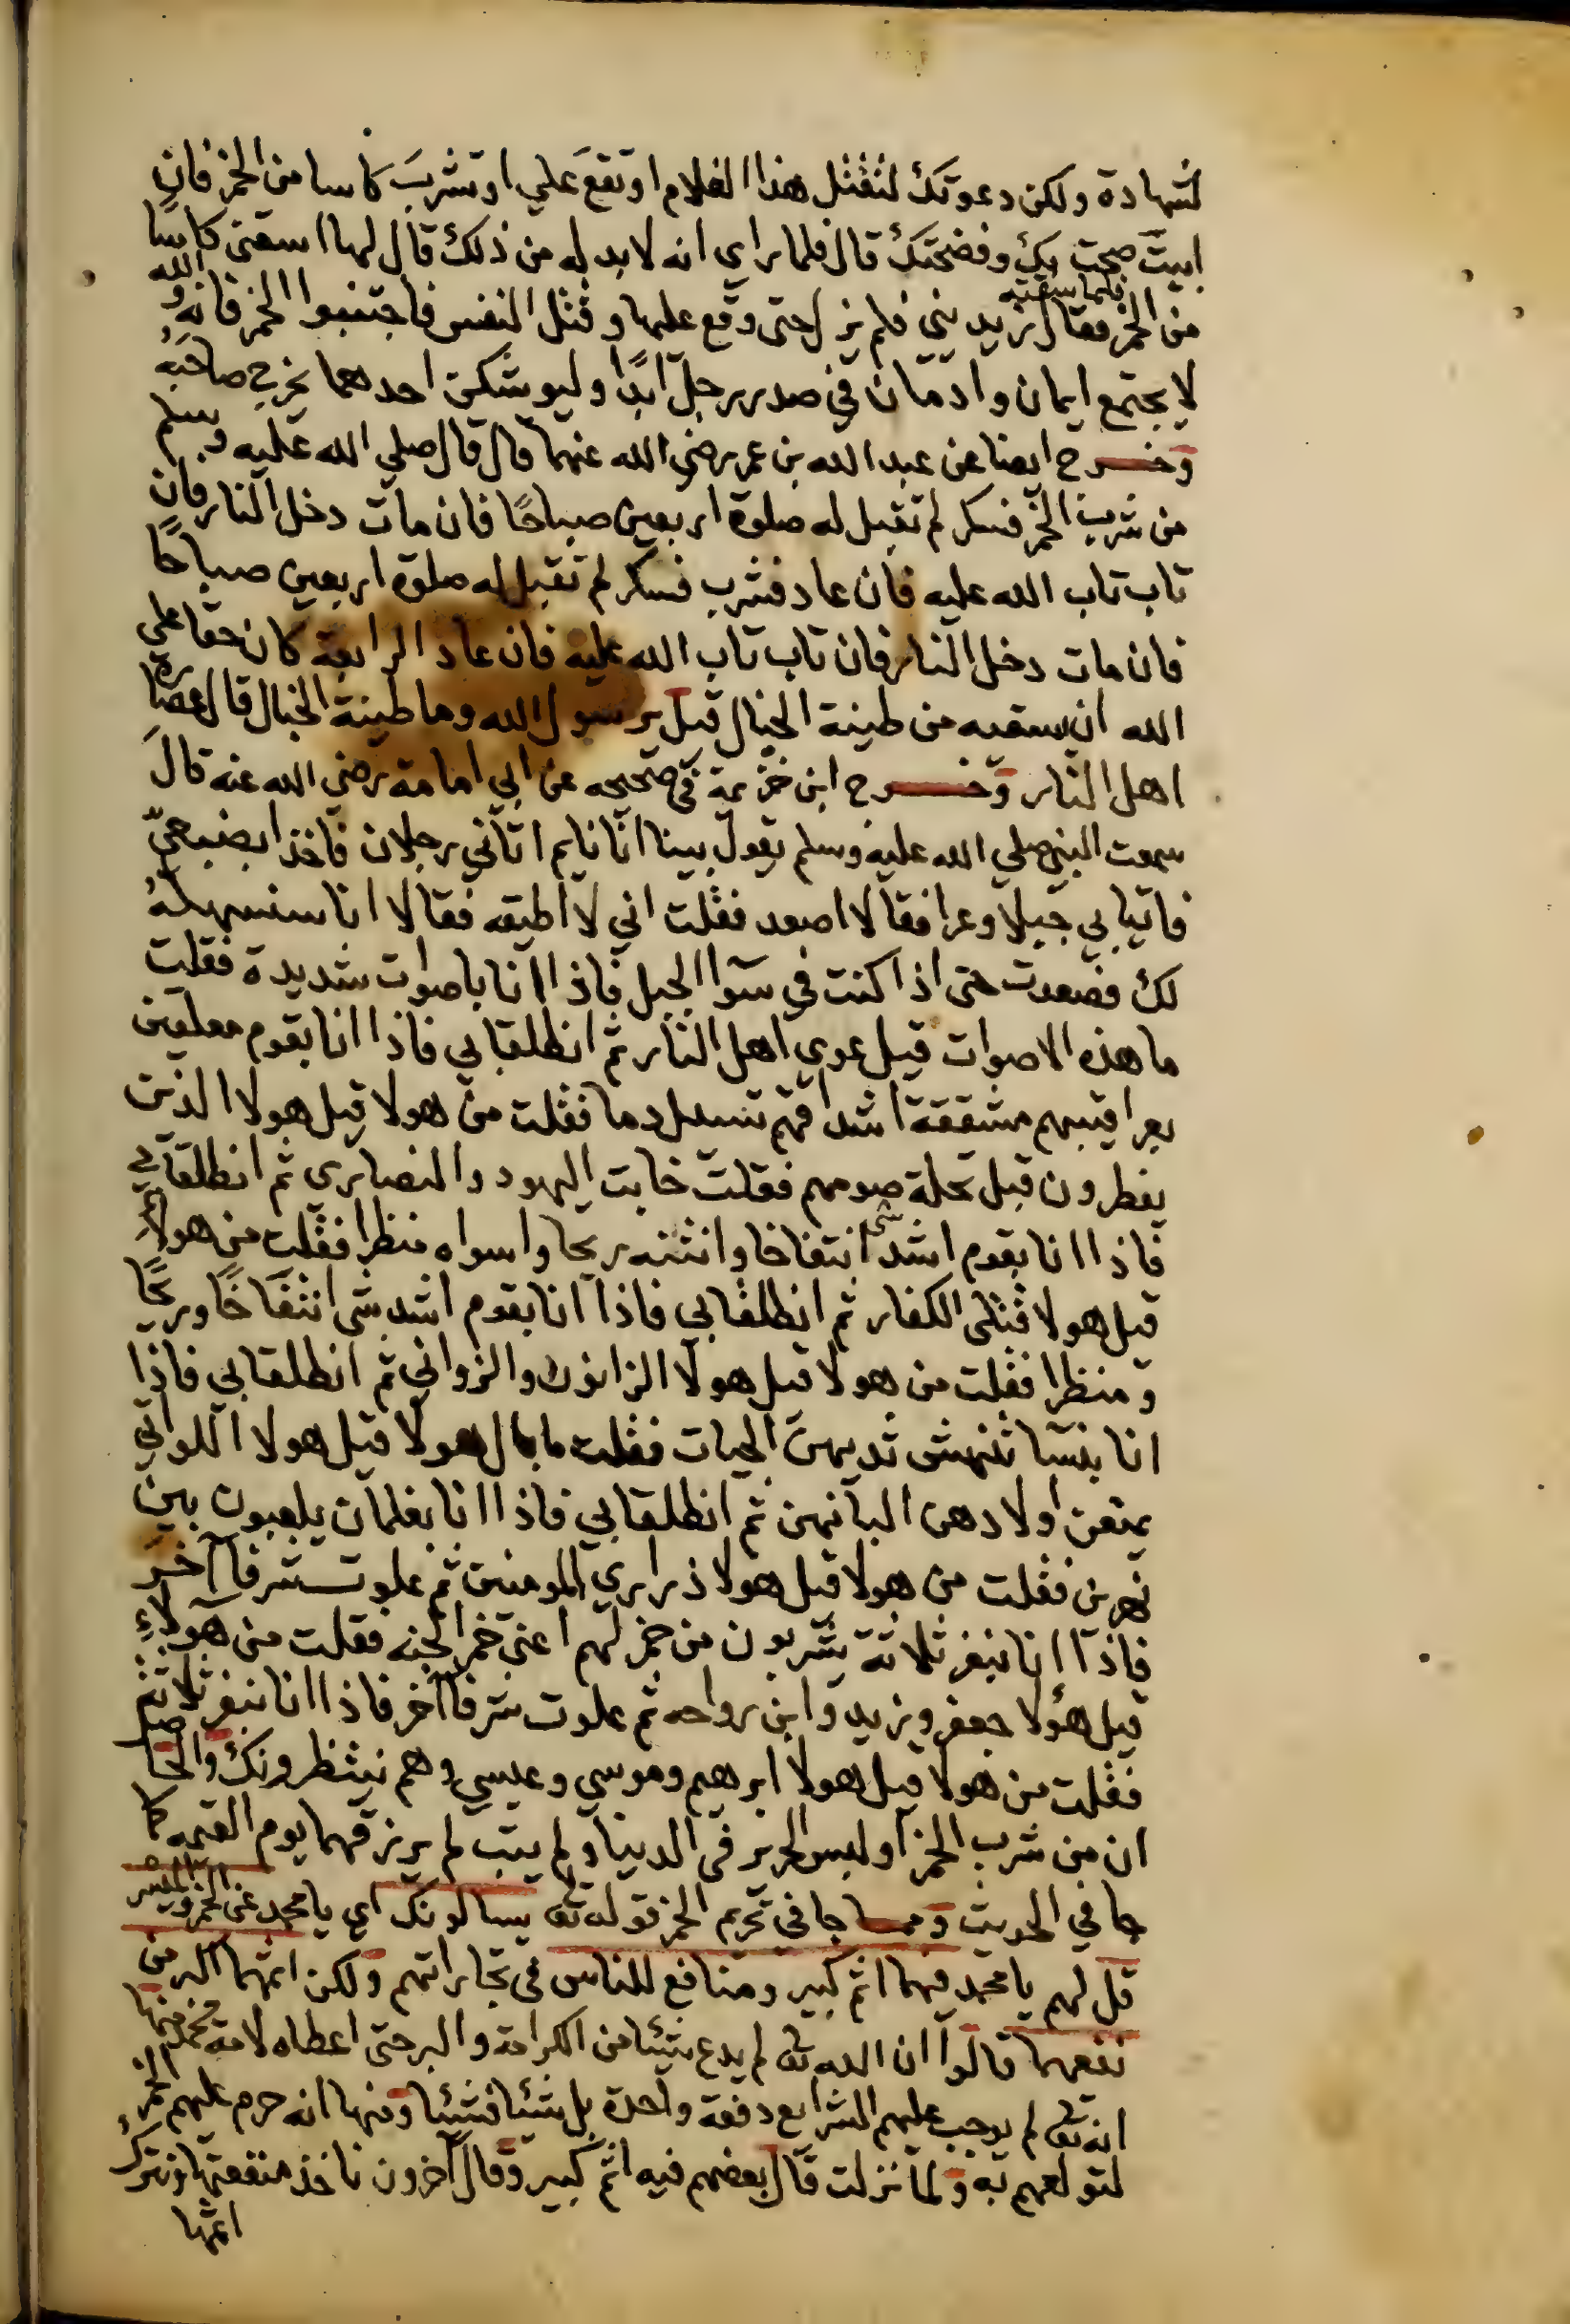 لشهادة ولكن دعوتك لتقتل هذا الغلام او تقع علي او تشرب كاسا من الخمر فان
ابيت صحت بك وفضحتك قال فلما راي انه لا بد له من ذلك قال لها اسقني كاسا
من الخمر فلما سقته فقال زيديني فلم يزل حتى وقع عليها وقتل النفس فاجتنبوا الخمر فانه والله
لا يجتمع ايمان وادمان في صدر رجل ابدا وليوشكن احدهما يخرج صاحبه
وخرج ايضا عن عبد الله بن عمر رضي الله عنهما قال قال صلي الله عليه وسلم
من شرب الخمر فسكر لم تقبل له صلوة اربعين صباحا فان مات دخل النار فان
تاب تاب الله عليه فان عاد فشرب فسكر لم تقبل له صلوة اربعين صباحا
فان مات دخل النار فان تاب تاب الله عليه فان عاد الرابعة كان حقا علي
الله ان يسقيه من طينة الخبال قيل يرسول الله وما طينة الخبال قال عصارة
اهل النار وخرج ابن خزيمة في صحيحه عن ابي امامة رضي الله عنه قال
سمعت النبي صلي الله عليه وسلم يقول بينا انا نايم اتاني رجلان فاخذا بضبعيّ
فاتيا بي جبلا وعرا فقالا اصعد فقلت اني لا اطيقه فقالا انا سنسهله
لك فصعدت حتى اذا كنت في سوا الجبل فاذا انا باصوات شديدة فقلت
ما هذه الاصوات قيل عوي اهل النار ثم انطلقا بي فاذا انا بقوم معلقين
بعراقيبهم مشققة اشداقهم تسيل دما فقلت من هولا قيل هولا الذين
يفطرون قبل تحلة صومهم فقلت خابت اليهود والنصارى ثم انطلقا بي
فاذا انا بقوم اشد شي انتفاخا وانتنه ريحا واسواه منظرا فقلت من هولاء
قيل هولا قتلى الكفار ثم انطلقا بي فاذا انا بقوم اشد شي انتفاخا وريحا
ومنظرا فقلت من هولا قيل هولا الزانون والزواني ثم انطلقا بي فاذا
انا بنسا تنهش ثديهن الحيات فقلت ما بال هولا قيل هولا اللواتي
يمنعن اولادهن البانهن ثم انطلقا بي فاذا انا بغلمان يلعبون بين
نهرين فقلت من هولا قيل هولا ذراري المومنين ثم علوت شرفا آخر
فاذا انا بنفر ثلاثة يشربون من خمر لهم اعني خمر الجنه فقلت من هولاء
قيل هؤلا جعفر وزيد وابن رواحه ثم علوت شرفا آخر فاذا انا بنفر ثلاثة
فقلت من هولا قيل هولا ابرهيم وموسي وعيسي وهم ينتظرونك والحاصل
ان من شرب الخمر او لبس الحرير في الدينا ولم يتب لم يرزقهما يوم القيمه كما
جا في الحديث ومما جا في تحريم الخمر قوله تع يسالونك اي يا محمد عن الخمر والميسر
قل لهم يا محمد فيهما اثم كبير ومنافع للناس في تجاراتهم ولكن اثمهما اكبر من
نفعهما قالوا ان الله تع لم يدع شيئا من الكرامة والبر حتى اعطاه لامة محمد منها
انه تع لم يوجب عليهم الشرايع دفعة واحدة بل شيئا فشيئا ومنها انه حرم عليهم الخمر
لتولعهم به ولما نزلت قال بعضهم فيه اثم كبير وقال آخرون ناخذ منفعتها ونترك
اثمها